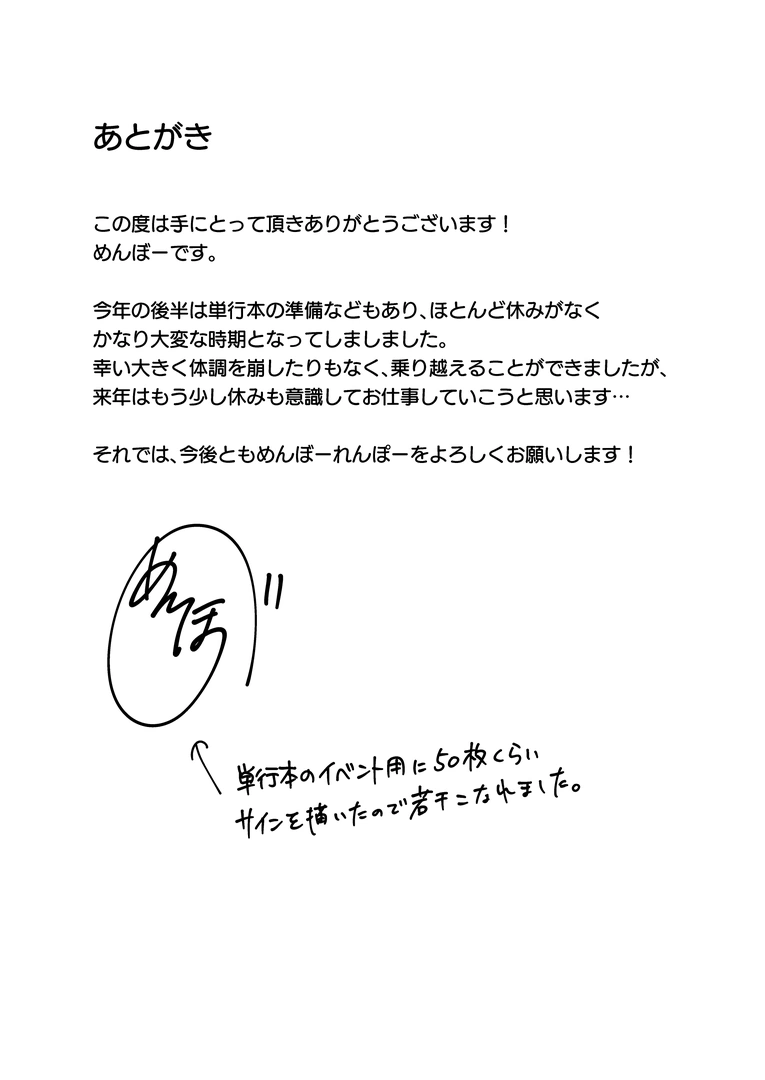 あとがき
この度は手にとって頂きありがとうございます！
めんぼーです。
今年の後半は単行本の準備などもあり、ほとんど休みがなく
かなり大変な時期となってしましました。
幸い大きく体調を崩したりもなく、乗り越えることができましたが、
来年はもう少し休みも意識してお仕事していこうと思います…
それでは、今後ともめんぼーれんぽーをよろしくお願いします！
めんぼ
単行本のイベント用に50枚くらい
サインを描いたので若干こなれました。